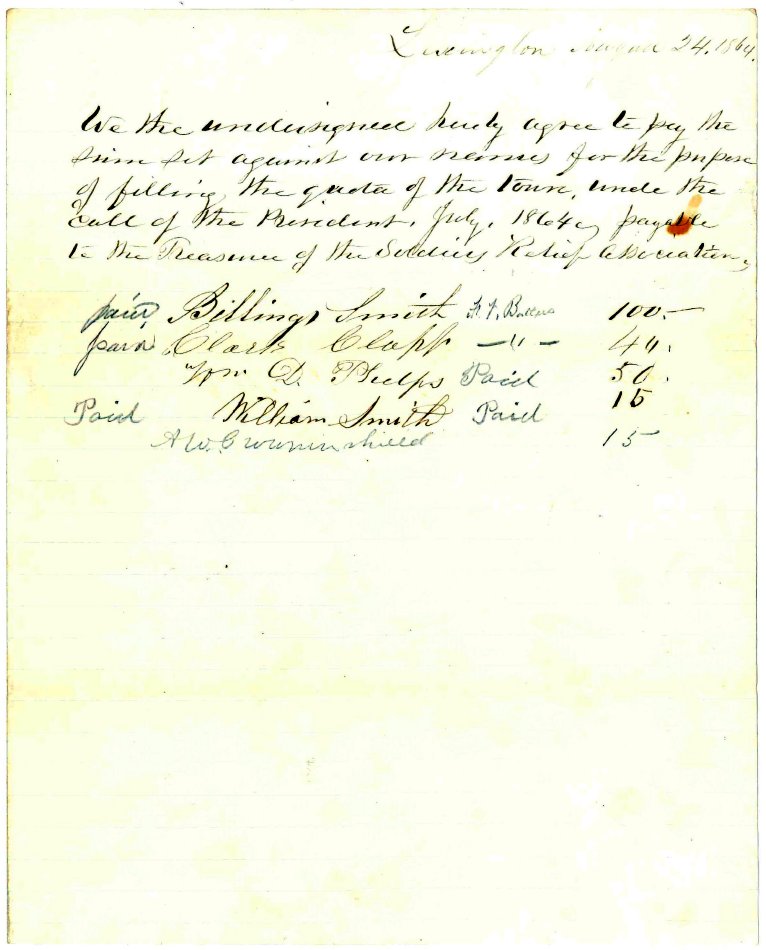 Lexington August 24, 1864.
We the undersigned hereby agree to pay the
sum set against our names for the purpose
of filling the quota of the town, under the
call of the President, July, 1864, payable
to the Treasurer of the Soldiers Relief Association,
paid Billings Smith 100.—
paid Clark Clapp —"— 40.
Wm D. Phelps Paid 50.
Paid William Smith Paid 15
A W. Crowninshield 15